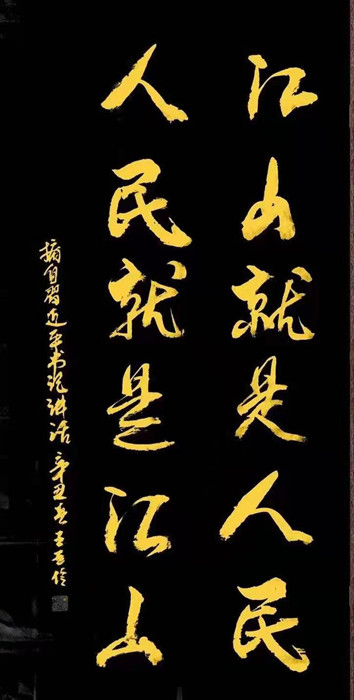 江山就是人民
人民就是江山
摘自习近平书记讲话 辛丑春